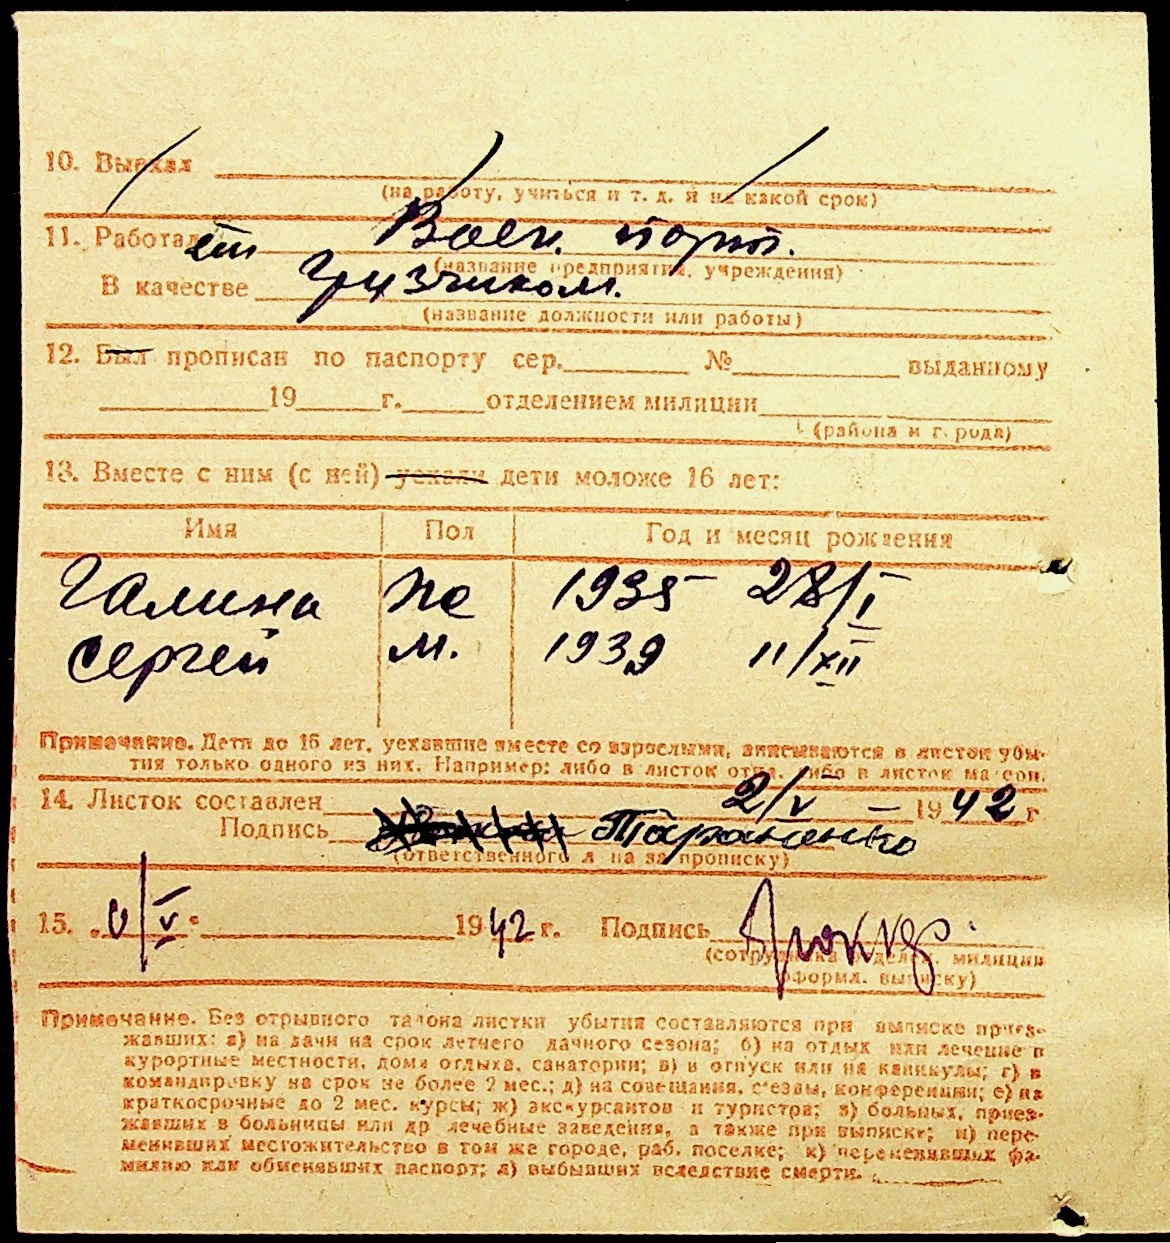 10. Выехал
(на работу, учиться и т. д. и на какой срок)
11. Работает Воен. порт.
(название предприятия, учреждения)
В качестве Грузчиком.
(название должности или работы)
12. Был прописан по паспорту сер. № выданному
19 г. отделением милиции
(района и города)
13. Вместе с ним (с ней) уехали дети моложе 16 лет:
Имя Пол Год и месяц рождения
Галина же 1935 28/I
Сергей м. 1939 11/XII
Примечание. Дети до 16 лет, уехавшие вместе со взрослыми, вписываются в листок убы-
тия только одного из них. Например: либо в листок отца, либо в листок матери.
14. Листок составлен 2/V – 1942 г
Подпись Тараненко
(ответственного л на за прописку)
15. /V 1942 г. Подпись
(сотрудника отделен. милиции
оформл. выписку)
Примечание. Без отрывного талона листки убытия составляются при выписке приез-
жавших: а) на дачи на срок летнего дачного сезона; б) на отдых или лечение в
курортные местности, дома отдыха, санатории; в) в отпуск или на каникулы; г) в
командировку на срок не более 2 мес.; д) на совещания, съезды, конференции; е) на
краткосрочные до 2 мес. курсы; ж) экскурсантов и туристов; з) больных, приез-
жавших в больницы или др лечебные заведения, а также при выписке; и) пере-
менивших местожительство в том же городе, раб. поселке; к) переменивших фа-
милию или обменявших паспорт; л) выбывших вследствие смерти.